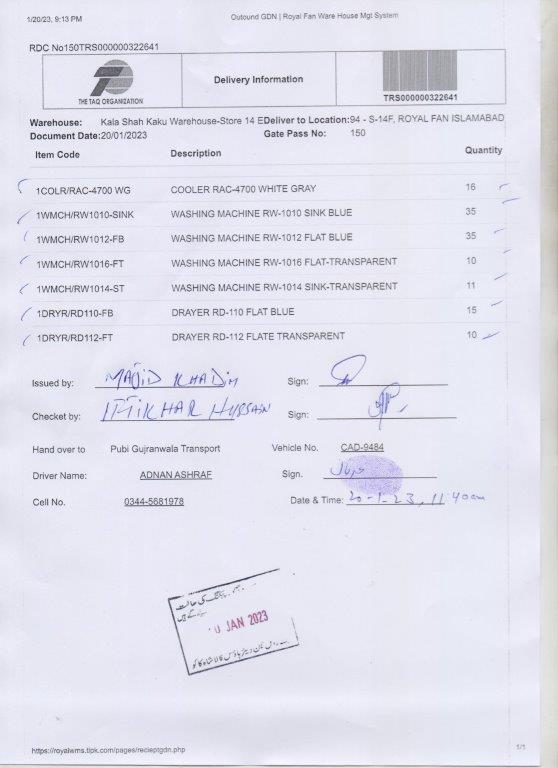 1/20/23, 9:13 PM Outound GDN | Royal Fan Ware House Mgt System
RDC No150TRS000000322641
THE TAQ ORGANIZATION
Delivery Information
TRS000000322641
Warehouse: Kala Shah Kaku Warehouse-Store 14 EDeliver to Location:94 - S-14F, ROYAL FAN ISLAMABAD
Document Date:20/01/2023 Gate Pass No: 150
Item Code Description Quantity
1COLR/RAC-4700 WG COOLER RAC-4700 WHITE GRAY 16
1WMCH/RW1010-SINK WASHING MACHINE RW-1010 SINK BLUE 35
1WMCH/RW1012-FB WASHING MACHINE RW-1012 FLAT BLUE 35
1WMCH/RW1016-FT WASHING MACHINE RW-1016 FLAT-TRANSPARENT 10
1WMCH/RW1014-ST WASHING MACHINE RW-1014 SINK-TRANSPARENT 11
1DRYR/RD110-FB DRAYER RD-110 FLAT BLUE 15
1DRYR/RD112-FT DRAYER RD-112 FLATE TRANSPARENT 10
Issued by: MAJID KHADIM Sign:
Checket by: IFTIKHAR HUSSAIN Sign:
Hand over to Pubi Gujranwala Transport Vehicle No. CAD-9484
Driver Name: ADNAN ASHRAF Sign.
Cell No. 0344-5681978 Date & Time: 20-1-23, 11:40am
کی حالت
JAN 2023
https://royalwms.tipk.com/pages/recieptgdn.php 1/1